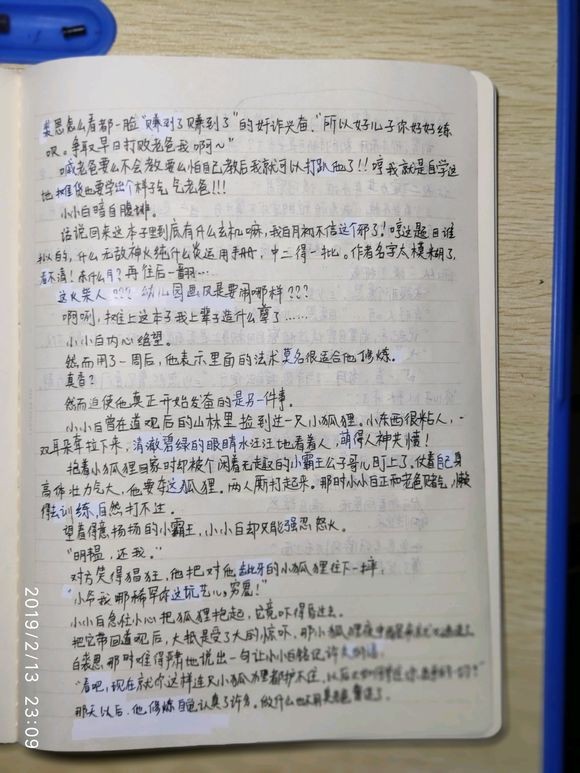 裴思怎么看都一脸"赚到了赚到了"的奸诈兴奋,"所以好儿子你好好练
哦。争取早日打败老爸我啊～"
喊老爸要么不会教要么怕自己教后我就可以打趴他了!!哼我就是自学
地 也要学出个样子气气老爸!!!
小小白暗自腹诽。
话说回来这本子里到底有什么玄机嘛,我白月初不信这个邪了!哼这题目谁
拟的,什么无敌神火纯什么炎运用手册,中二得一批。作者名字太模糊了
看不清!东什么月?再往后一翻…
这火柴人???幼儿园画风是要闹哪样???
啊咧,摊上这本子我上辈子造什么孽了……
小小白内心绝望。
然而用了一周后,他表示里面的法术莫名很适合他修炼。
真香?
然而迫使他真正开始发奋的是另一件事。
小小白曾在道观后的山林里捡到过一只小狐狸。小东西很粘人,一
双耳朵耷拉下来,清澈碧绿的眼睛水汪汪地看着人,萌得人神共愤!
抱着小狐狸回家时却被个闲着无趣的小霸王公子哥儿盯上了。仗着自己身
高体壮力气大,他要夺这狐狸。两人厮打起来。那时小小白正和老爸赌气,懒
得去训练,自然打不过。
望着得意扬扬的小霸王,小小白却只能强忍怒火。
"明韫,还我。"
对方笑得猖狂,他把对他龇牙的小狐狸往下一摔,
"小爷我哪稀罕你这玩艺儿,穷鬼!"
小小白急忙小心把狐狸抱起,它竟吓得昏过去。
把它带回道观后,大抵是受了大的惊吓,那小狐狸
白裴恩那时难得严肃地说出一句让小小白铭记许久的话。
"看吧,现在就你这样连只小狐狸都护不住,以后
那天以后,他修炼自觉认真了许多。做什么也不用老爸督促了。
2019/2/13 23:09